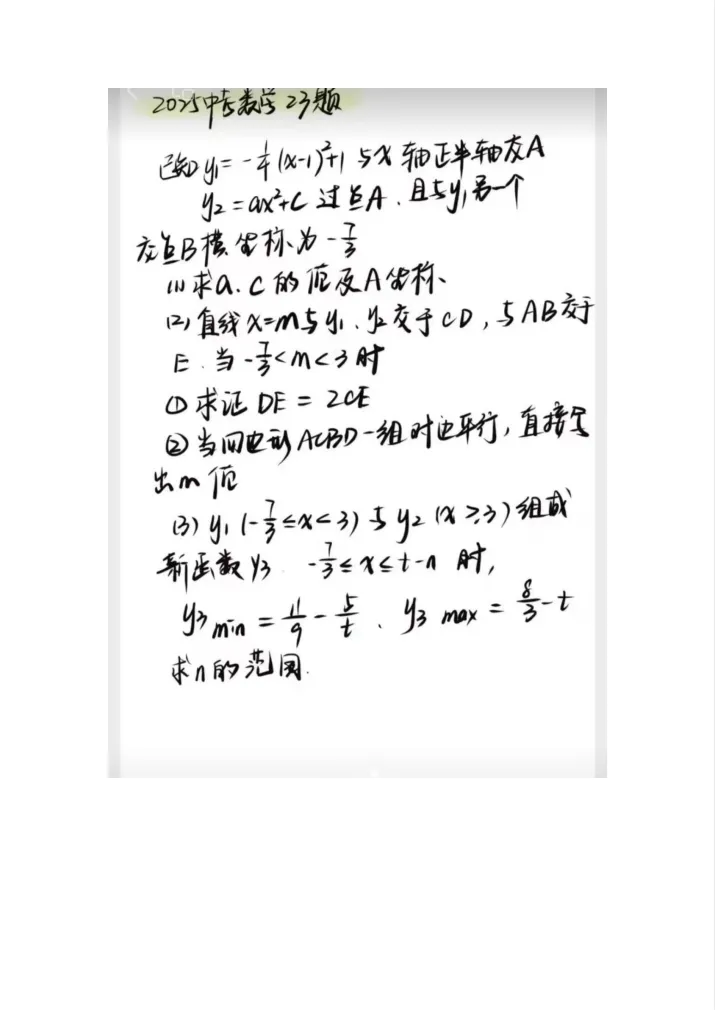 2025中考数学23题
已知y₁=-¼(x-1)²+1与x轴正半轴交A
y₂=ax²+c过点A.且与y₁另一个
交点B横坐标为-7/3
(1)求a.c的值及A坐标、
(2)直线x=m与y₁、y₂交于CD,与AB交于
E.当-7/3<m<3时
①求证DE=2CE
②当四边形ACBD一组对边平行,直接写
出m值
(3)y₁(-7/3≤x<3)与y₂(x≥3)组成
新函数y₃.-7/3≤x≤t-n时,
y₃ min=11/9-5/t、y₃ max=8/3-t
求n的范围.